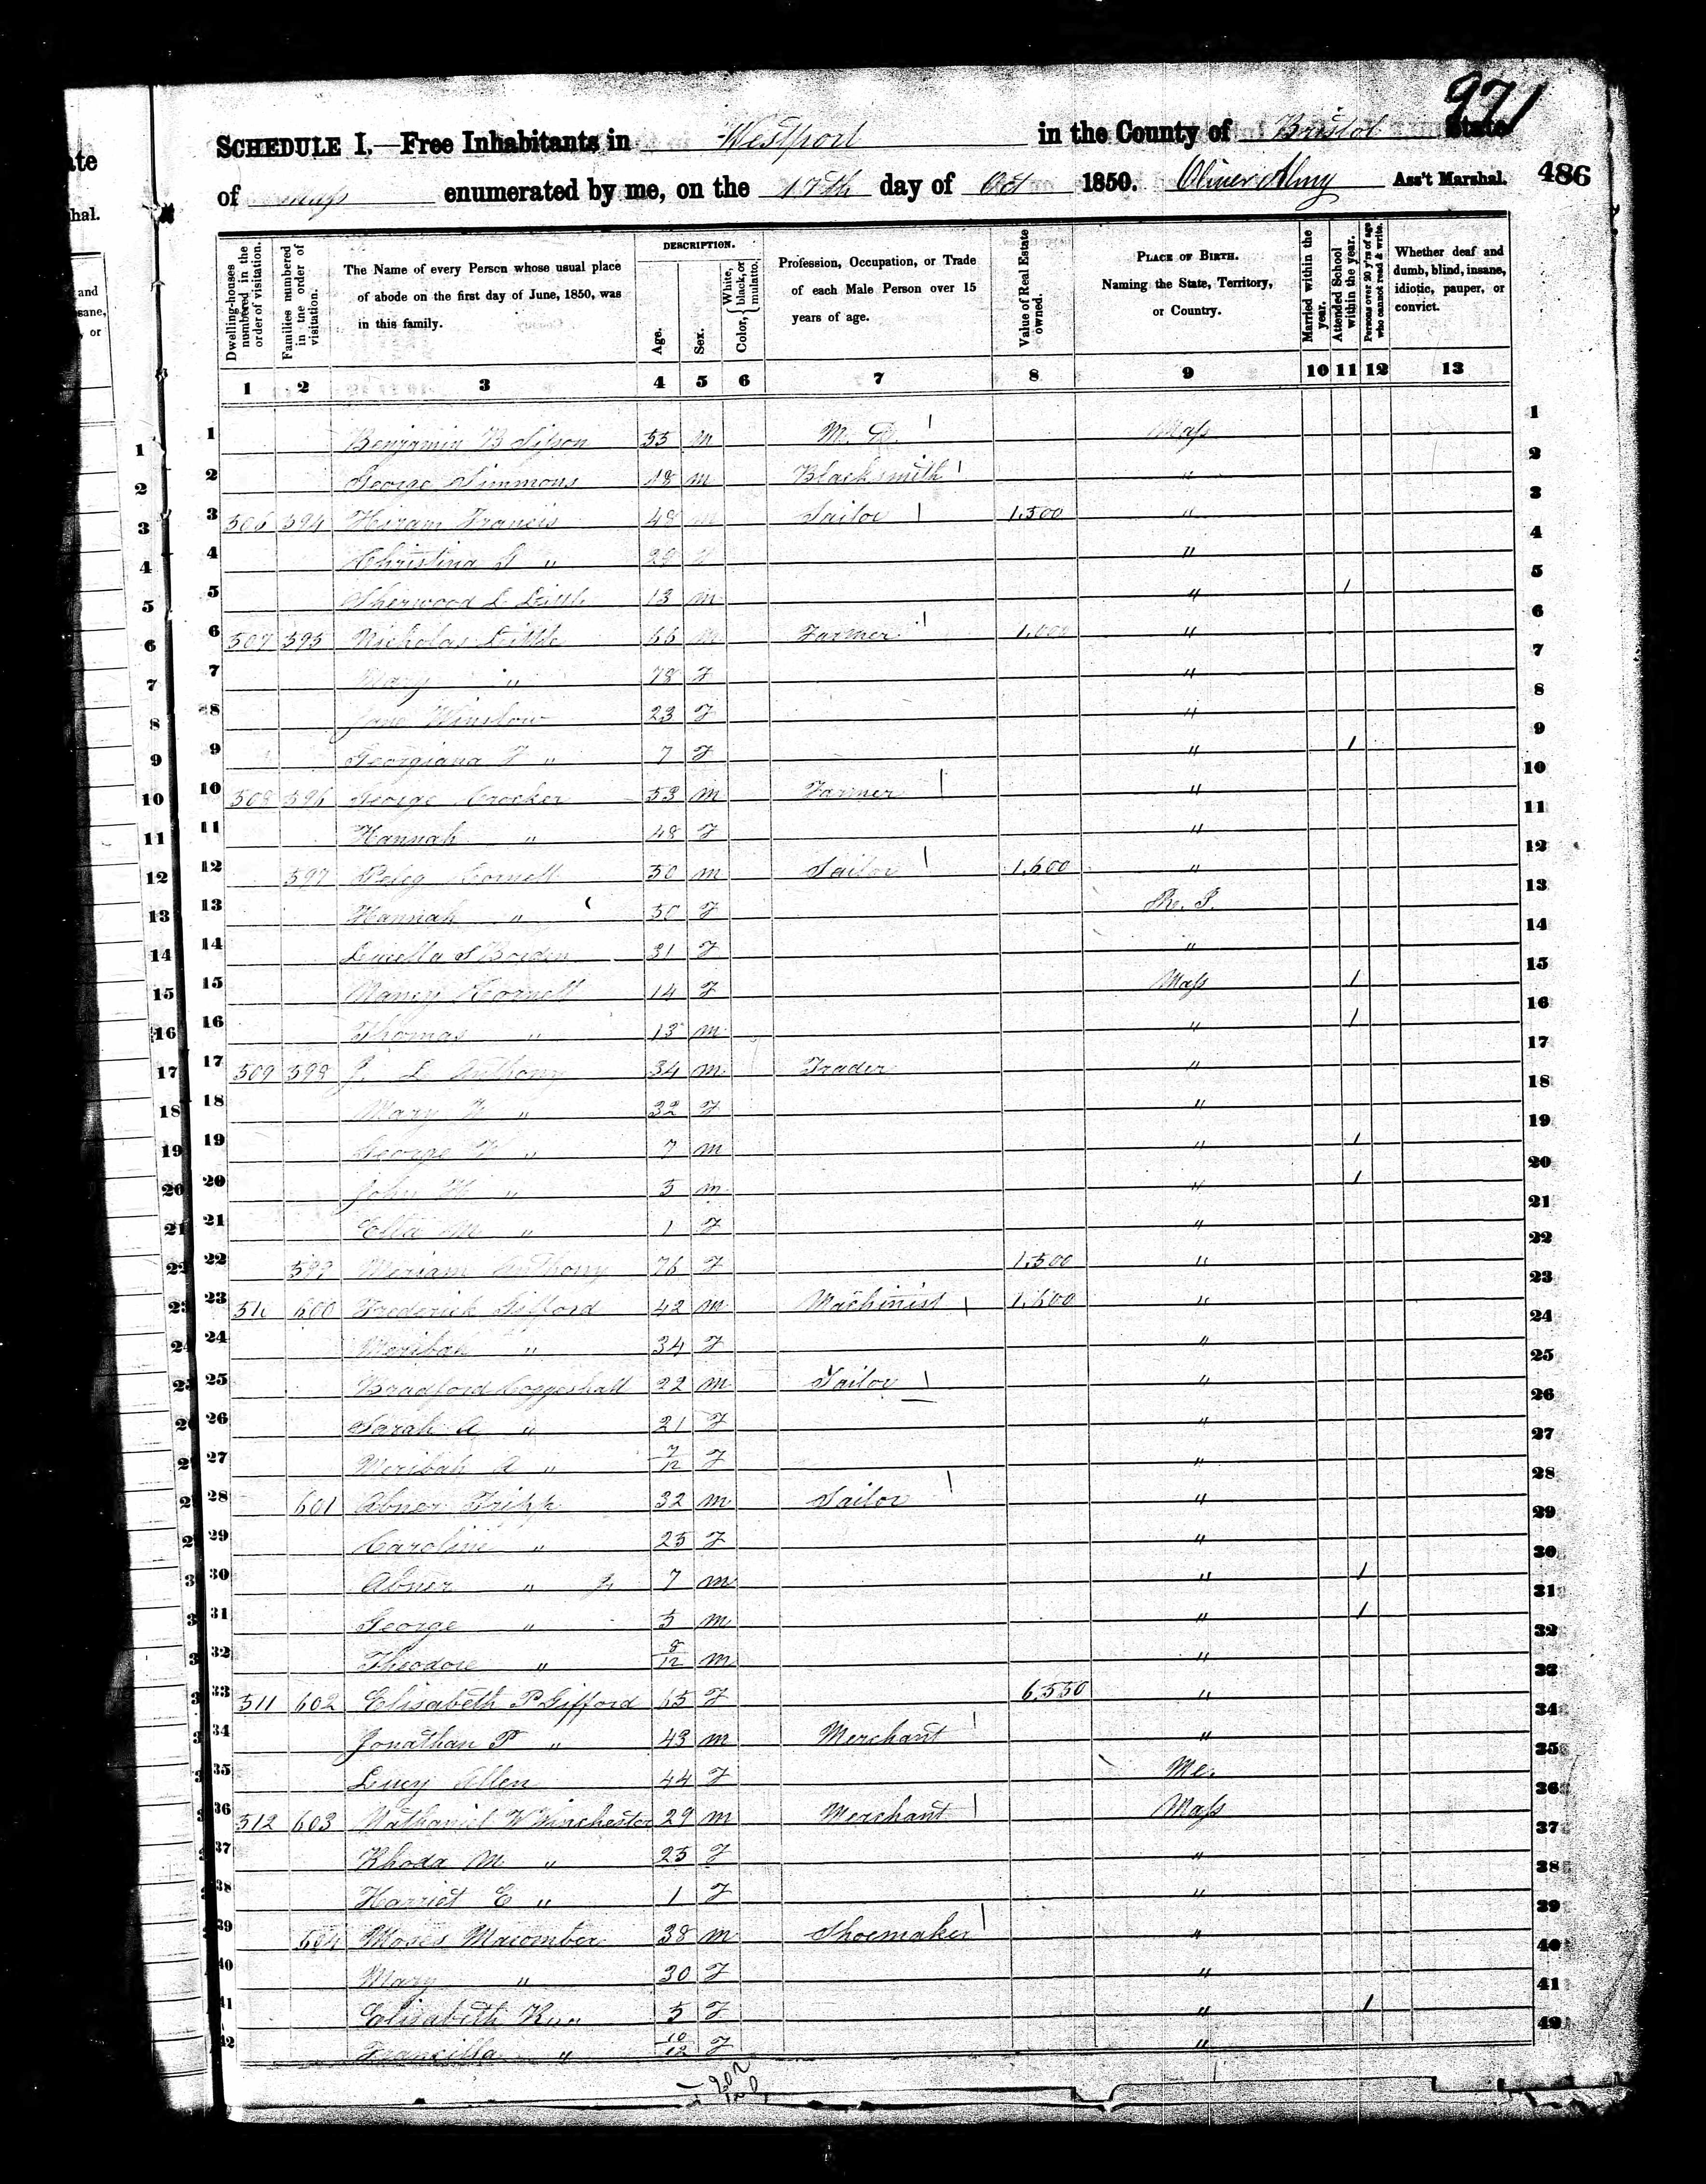 971
SCHEDULE I.—Free Inhabitants in Westport in the County of Bristol State
of Mass enumerated by me, on the 17th day of Oct 1850. Oliver Almy Ass't Marshal. 486
Dwelling-houses numbered in the order of visitation. | Families numbered in the order of visitation. | The Name of every Person whose usual place of abode on the first day of June, 1850, was in this family. | DESCRIPTION. Age. Sex. Color, { White, black, or mulatto. | Profession, Occupation, or Trade of each Male Person over 15 years of age. | Value of Real Estate owned. | PLACE OF BIRTH. Naming the State, Territory, or Country. | Married within the year. | Attended School within the year. | Persons over 20 y'rs of age who cannot read & write. | Whether deaf and dumb, blind, insane, idiotic, pauper, or convict.
1 2 3 4 5 6 7 8 9 10 11 12 13
1 Benjamin B Sisson 55 m M. D. Mass 1
2 George Simmons 18 m Blacksmith " 2
3 506 594 Hiram Francis 48 m Tailor 1,500 " 3
4 Christina " 29 " 4
5 Sherwood L Little 13 m " 1 5
6 507 595 Nickolas Little 66 m Farmer 1,000 " 6
7 Mary " 78 F " 7
8 Jane Winslow 23 F " 8
9 Georgiana F " 7 F " 1 9
10 508 596 George Crocker 53 m Farmer " 10
11 Hannah " 48 F " 11
12 597 Peleg Cornell 50 m Sailor 1,600 " 12
13 Hannah " 50 F R. I. 13
14 Luella S Borden 31 F " 14
15 Nancy Cornell 14 F Mass 1 15
16 Thomas " 13 m " 1 16
17 509 598 J. L Anthony 34 m Trader " 17
18 Mary " 32 F " 18
19 George " 7 m " 1 19
20 John H " 5 m " 1 20
21 Etta M " 1 F " 21
22 599 Meriam Anthony 76 F 1,500 " 22
23 510 600 Frederick Gifford 42 m Machinist 1,600 " 23
24 Meribah " 34 F " 24
25 Bradford Coggeshall 22 m Sailor " 25
26 Sarah A " 21 F " 26
27 Meribah A " 7/12 F " 27
28 601 Abner Tripp 32 m Sailor " 28
29 Caroline " 25 F " 29
30 Abner " Jr 7 m " 1 30
31 George " 5 m " 1 31
32 Theodore " 8/12 m " 32
33 511 602 Elisabeth P Gifford 65 F 6,550 " 33
34 Jonathan P " 43 m Merchant " 34
35 Lucy Allen 44 F Me. 35
36 512 603 Nathaniel W Winchester 29 m Merchant Mass 36
37 Rhoda M " 25 F " 37
38 Harriet E " 1 F " 38
39 604 Moses Macomber 38 m Shoemaker " 39
40 Mary " 30 F " 40
41 Elisabeth K " 5 F " 1 41
42 Francilla " 10/12 F "